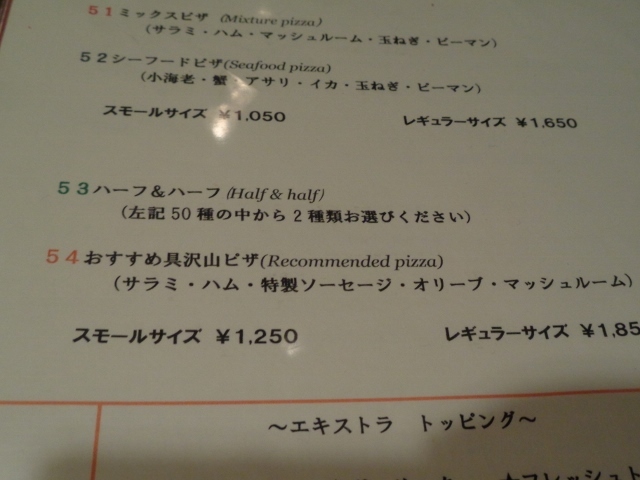 51ミックスピザ (Mixture pizza)
(サラミ・ハム・マッシュルーム・玉ねぎ・ピーマン)
52シーフードピザ(Seafood pizza)
(小海老・蟹・アサリ・イカ・玉ねぎ・ピーマン)
スモールサイズ ¥1,050 レギュラーサイズ ¥1,650
53ハーフ&ハーフ(Half & half)
(左記50種の中から2種類お選びください)
54おすすめ具沢山ピザ(Recommended pizza)
(サラミ・ハム・特製ソーセージ・オリーブ・マッシュルーム)
スモールサイズ ¥1,250 レギュラーサイズ ¥1,85
~エキストラ トッピング~